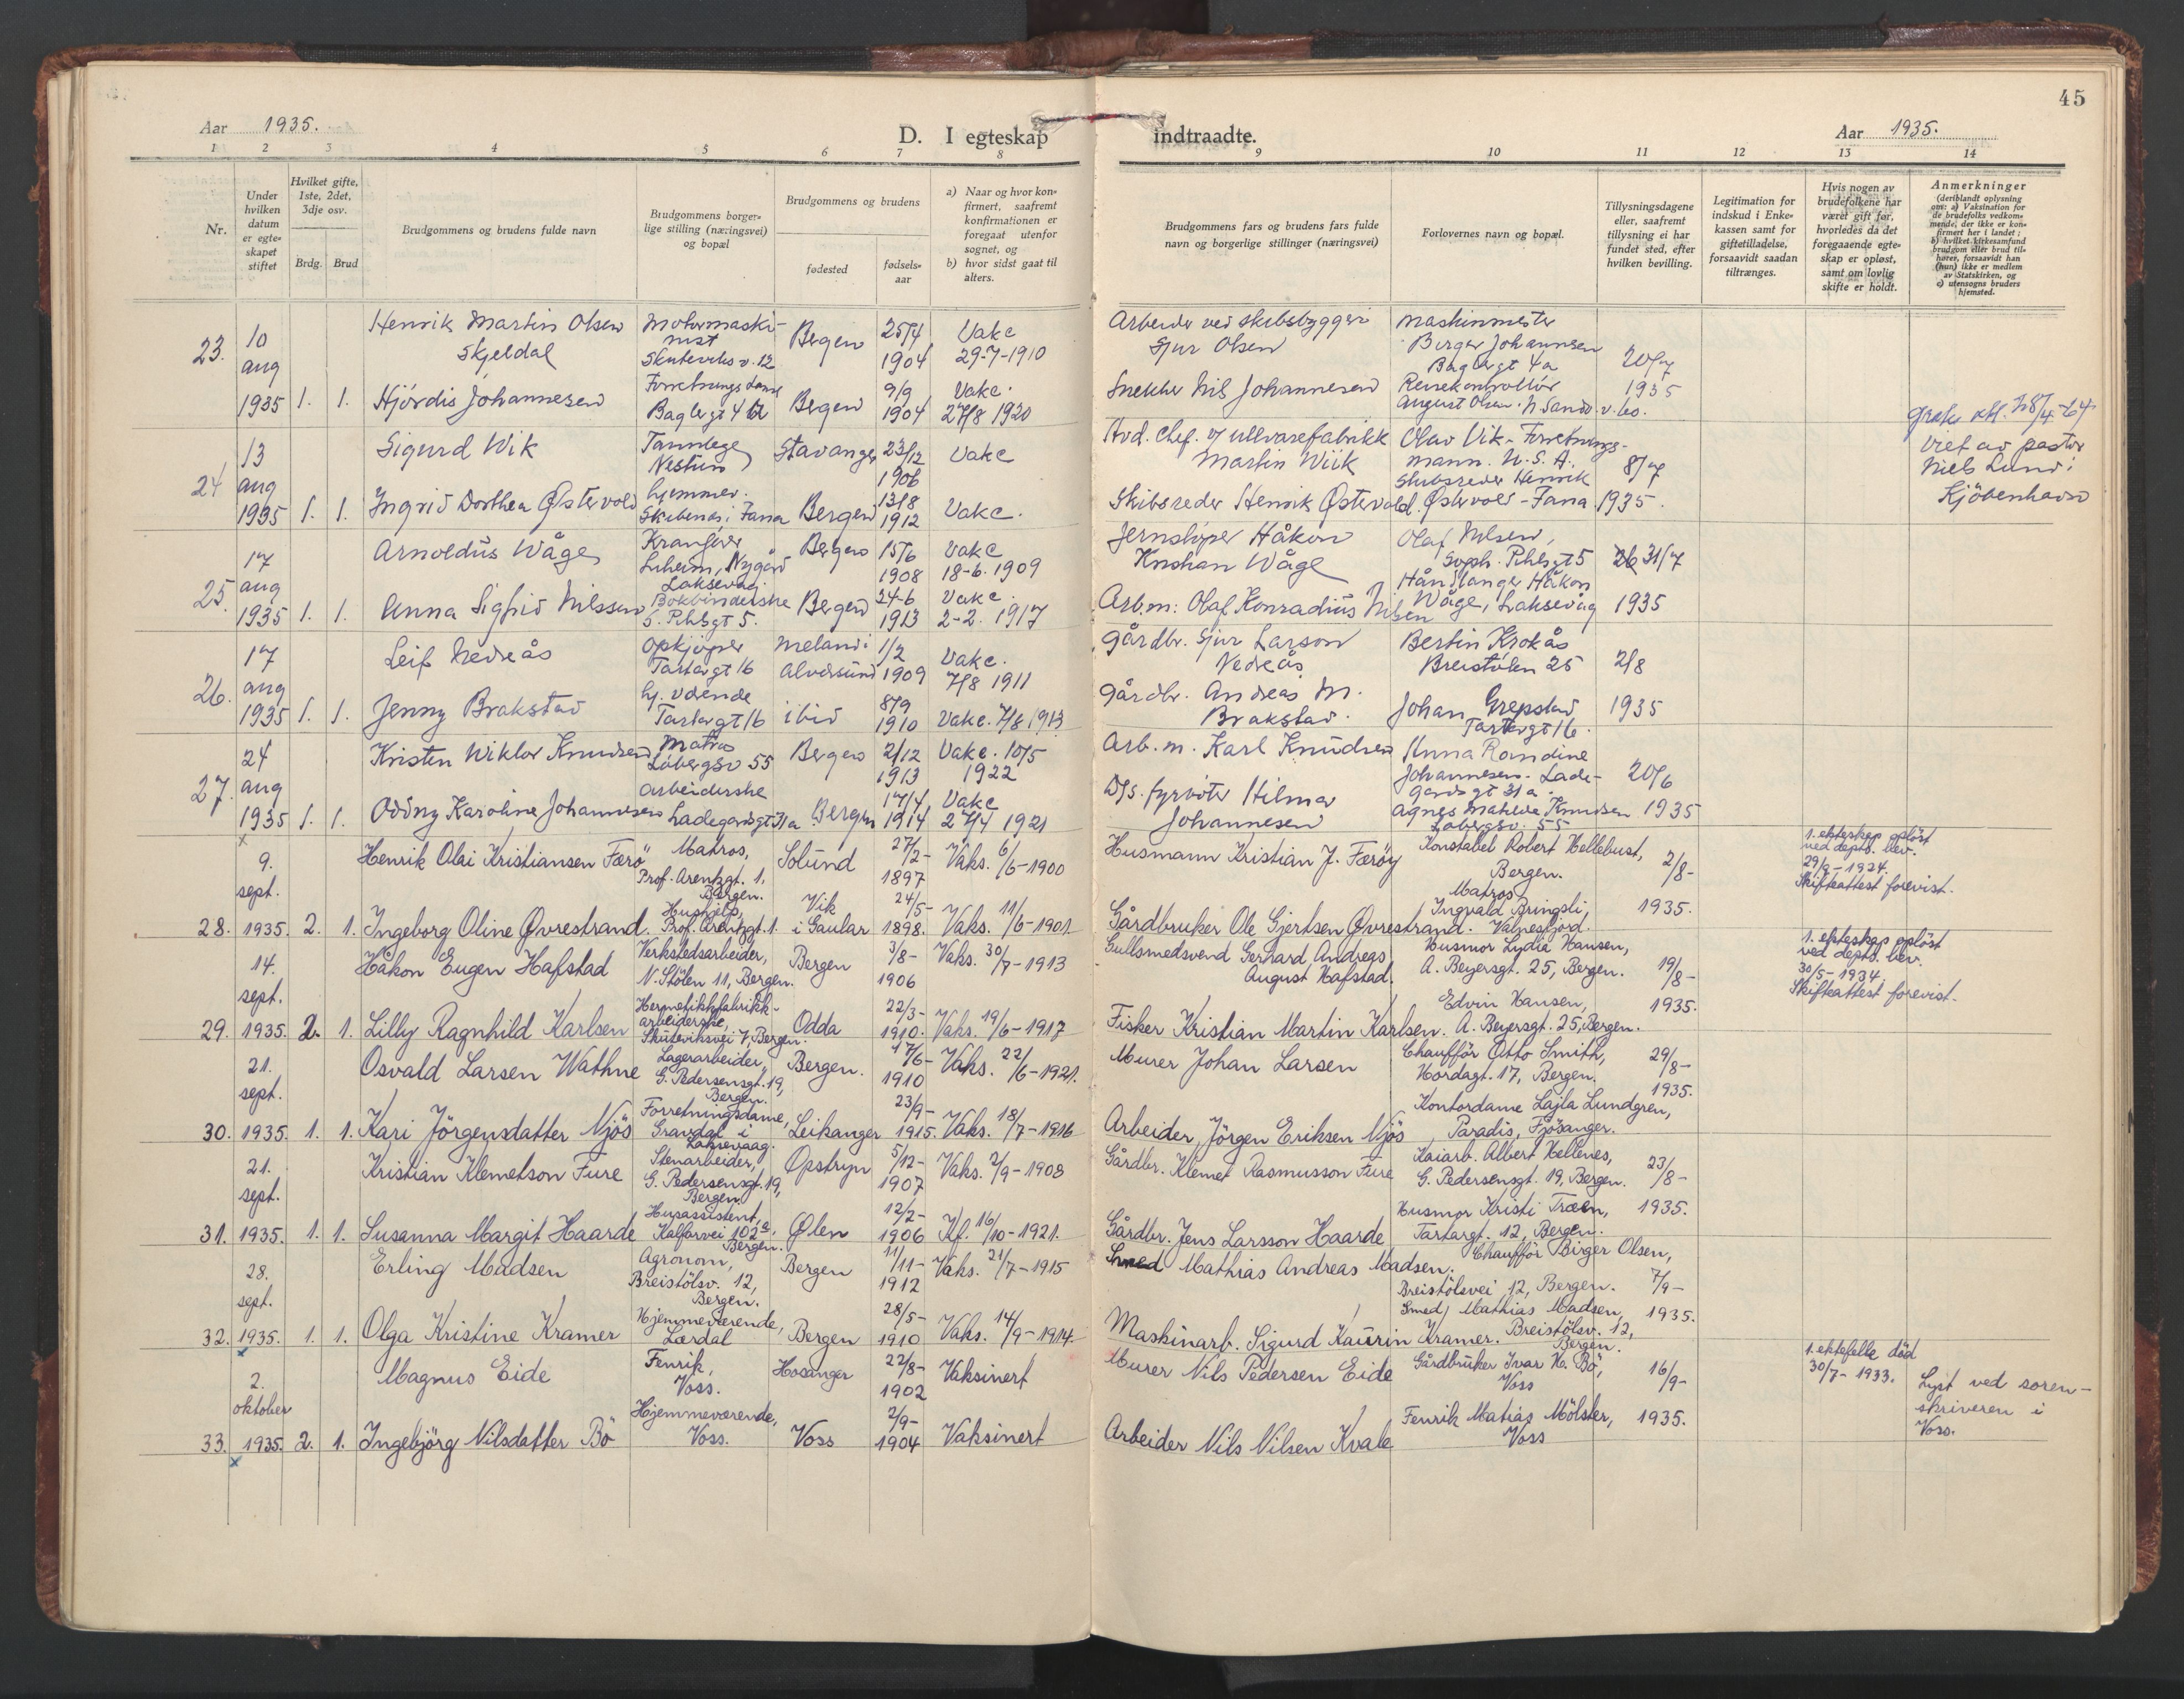 45
Aar 1935.
D. I egteskap indtraadte.
Aar 1935.
1 2 3 4 5 6 7 8 9 10 11 12 13 14
Nr.
Under hvilken datum er egte-skapet stiftet
Hvilket gifte, 1ste, 2det, 3dje osv.
Brdg. Brud
Brudgommens og brudens fulde navn
Brudgommens borger-lige stilling (næringsvei) og bopæl
Brudgommens og brudens
fødested
fødsels-aar
a) Naar og hvor kon-firmert, saafremt konfirmationen er foregaat utenfor sognet, og
b) hvor sidst gaat til alters.
Brudgommens fars og brudens fars fulde navn og borgerlige stillinger (næringsvei)
Forlovernes navn og bopæl.
Tillysningsdagene eller, saafremt tillysning ei har fundet sted, efter hvilken bevilling.
Legitimation for indskud i Enke-kassen samt for giftetilladelse, forsaavidt saadan tiltrænges.
Hvis nogen av brudefolkene har været gift før, hvorledes da det foregaaende egte-skap er opløst, samt om lovlig skifte er holdt.
Anmerkninger (deriblandt oplysning om: a) Vaksination for de brudefolks vedkom-mende, der ikke er kon-firmert her i landet; b) hvilket kirkesamfund brudgom eller brud til-hører, forsaavidt han (hun) ikke er medlem av Statskirken, og c) utensogns bruders hjemsted.
23. 10 aug 1935 1. 1.
Henrik Martin Olsen Skjeldal
Motormaski-nist Skuteviksv. 12
Bergen 25/4 1904
Vakc 29-7-1910
Arbeider ved skibsbyggeri Sjur Olsen
Maskinmester Birger Johannsen Baglergt 4a
20/7 1935
Hjørdis Johannesen
Forretningsdame Baglergt 4 a
Bergen 9/9 1904
Vakc. 27/8 1920
Snekker Nils Johannesen
Reisekontrollör August Olsen. N. Sandv. v. 60.
24 13 aug 1935 1. 1.
Sigurd Wik
Tannlege Nestun
Stavanger 23/12 1906
Vakc
Avd. chef. v/ ullvarefabrikk Martin Wiik
Olav Vik - Forretnings-mann. U. S. A.
8/7 1935.
Viet av pastor Niels Lund i Kjöbenhavn
Ingrid Dorthea Østervold
hjemmev. Skibenes i Fana
Bergen 13/8 1912
Vakc.
Skibsreder Henrik Østervold.
Skibsreder Henrik Østervold - Fana
25. 17 aug 1935 1. 1.
Arnoldus Wåge
Kranfører Nygård Laksevåg.
Bergen 15/6 1908
Vakc 18-6. 1909
Jernskiper Håkon Kristian Wåge
Olaf Nilsen, Soph. Pihlsgt 5
31/7 1935
Anna Sigfrid Nilssen
Bokbinderske S. Pihlsgt 5.
Bergen 24-6 1913
Vakc. 2-2. 1917
Arb.m: Olaf Konradius Nilsen
Håndlanger Håkon Wåge, Laksevåg
26. 17 aug 1935 1. 1.
Leif Nedreås
Opkjøper Tartargt 16
Meland i Alversund 1/2 1909
Vakc. 7/8 1911
Gårdbr. Sjur Larson Nedreås
Bertin Krokås Breistølen 25
2/8 1935
Jenny Brakstad
hj. værende Tartargt 16
ibid 8/9 1910
Vakc. 7/8 1913
Gårdbr. Andreas M. Brakstad.
Johan Grepstad Tartargt 16.
27. 24 aug 1935 1. 1.
Kristen Wiktor Knudsen
Matros Løbergsv 55
Bergen 2/12 1913
Vakc. 10/5 1922
Arb. m. Karl Knudsen
Anna Randine Johannesen. Lade-gardsgt 31 a.
20/6 1935
Oddny Karoline Johannesen
arbeiderske Ladegardsgt 31a
Bergen 17/4 1914
Vakc 27/4 1921
D/S. fyrböter Hilmar Johannesen
Agnes Mathilde Knudsen Løbergsv. 55
28. 9. sept. 1935. 2. 1.
Henrik Olai Kristiansen Færö
Matros, Prof. Arentzgt. 1, Bergen.
Solund 27/2- 1897
Vaks. 6/6-1900
Husmann Kristian J. Færöy
Konstabel Robert Hellebust, Bergen.
2/8- 1935.
1. ekteskap oplöst ved depts. bev. 29/9-1924. Skifteattest forevist.
Ingeborg Oline Øvrestrand.
Hushjelp, Prof. Arentzgt. 1.
Vik i Gaular 24/5- 1898.
Vaks. 11/6-1901
Gårdbruker Ole Gjertsen Øvrestrand.
Matros Ingvald Bringsli, Valnesfjord.
29. 14. sept. 1935. 2. 1.
Håkon Eugen Hafstad
Verkstedsarbeider, N. Stölen 11, Bergen.
Bergen 3/8- 1906
Vaks. 30/7-1913
Gullsmedsvend Gerhard Andreas August Hafstad.
Husmor Lydia Hansen, A. Beyersgt. 25, Bergen.
19/8- 1935.
1. ekteskap oplöst ved depts. bev. 30/5-1934. Skifteattest forevist.
Lilly Ragnhild Karlsen
Hermetikkfabrikk-arbeiderske, Skuteviksvei 7, Bergen.
Odda 22/3- 1910.
Vaks. 19/6-1917
Fisker Kristian Martin Karlsen.
Edvin Hansen, A. Beyersgt. 25, Bergen.
30. 21. sept. 1935. 1. 1.
Osvald Larsen Wathne
Lagerarbeider, G. Pedersensgt. 19, Bergen.
Bergen. 17/6- 1910
Vaks. 22/6-1921.
Murer Johan Larsen
Chaufför Otto Smith, Hordagt. 17, Bergen.
29/8- 1935.
Kari Jörgensdatter Njös
Forretningsdame, Gravdal i Laksevaag.
Leikanger 23/9- 1915.
Vaks. 18/7-1916
Arbeider Jörgen Eriksen Njös
Kontordame Lajla Lundgren, Paradis, Fjösanger.
31. 21. sept. 1935. 1. 1.
Kristian Klemetson Fure
Stenarbeider, G. Pedersensgt. 19, Bergen.
Opstryn 5/12- 1907
Vaks. 2/9-1908
Gårdbr. Klemet Rasmusson Fure
Kaiarb. Albert Hellenes, G. Pedersensgt. 19, Bergen.
23/8- 1935.
Susanna Margit Haarde
Husassistent, Kalfarvei 102a, Bergen.
Ølen 12/2- 1906
Kf. 16/10-1921.
Gårdbr. Jens Larsson Haarde
Husmor Kristi Træen, Tartargt. 12, Bergen.
32. 28. sept. 1935. 1. 1.
Erling Madsen
Agronom, Breistölsv. 12, Bergen.
Bergen 11/11- 1912
Vaks. 21/7-1915
Smed Mathias Andreas Madsen.
Chaufför Birger Olsen, Breistölsvei 12, Bergen.
7/9- 1935.
Olga Kristine Kramer
Hjemmeværende, Lærdal
Bergen 28/5- 1910
Vaks. 14/9-1914
Maskinarb. Sigurd Kaurin Kramer.
Smed Mathias Madsen, Breistölsv. 12, Bergen.
33. 2. oktober 1935. 2. 1.
Magnus Eide
Fenrik, Voss.
Hosanger 22/8- 1902
Vaksinert
Murer Nils Pedersen Eide
Gårdbruker Ivar H. Bö, Voss
16/9- 1935.
1. ektefelle död 30/7-1933.
Lyst ved soren-skriveren i Voss.
Ingebjörg Nilsdatter Bö
Hjemmeværende, Voss.
Voss 2/9- 1904
Vaksinert
Arbeider Nils Nilsen Kvale
Fenrik Matias Mölster, Voss